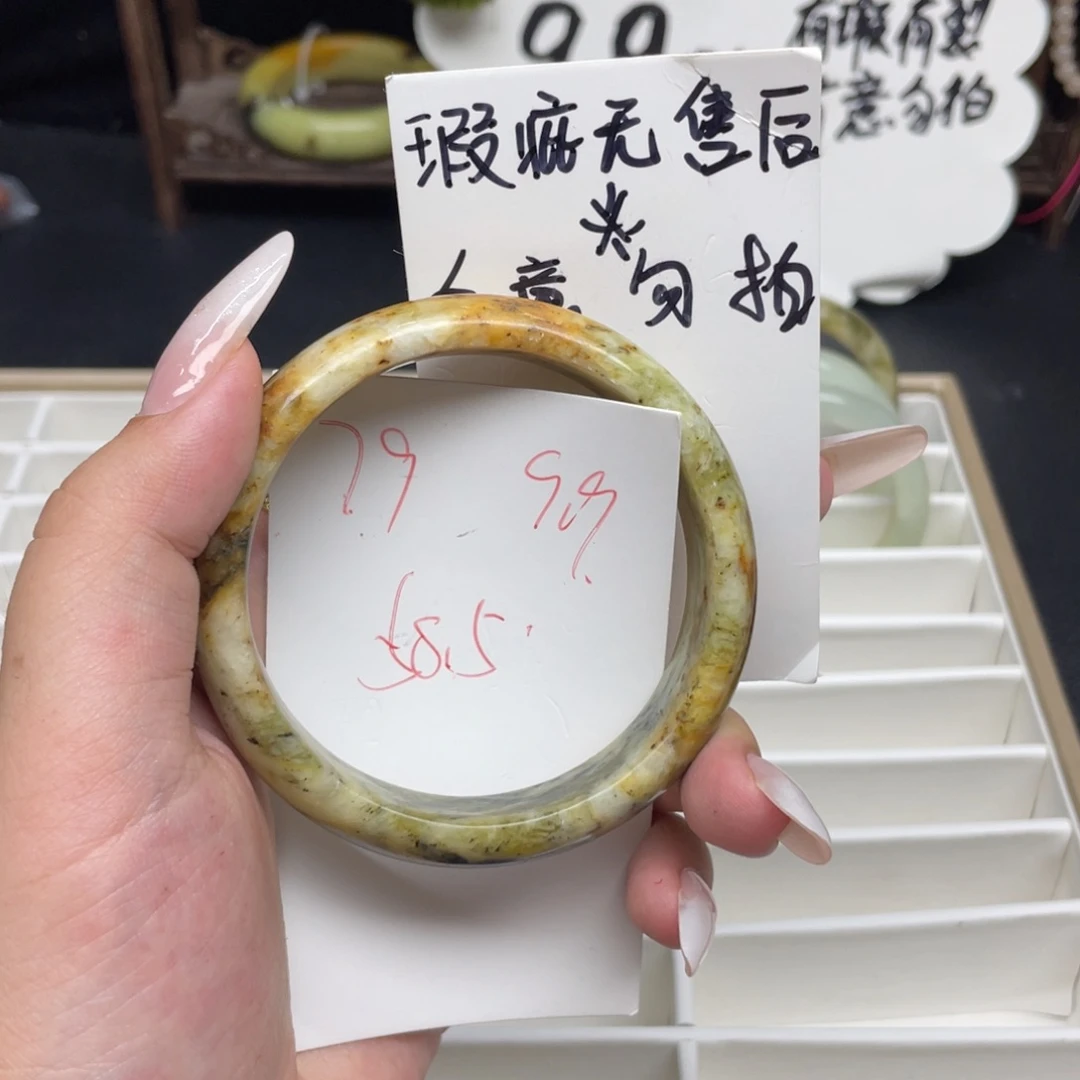 99
有瑕有裂
意勿拍
瑕疵无售后
介意勿拍
79 99
58.5